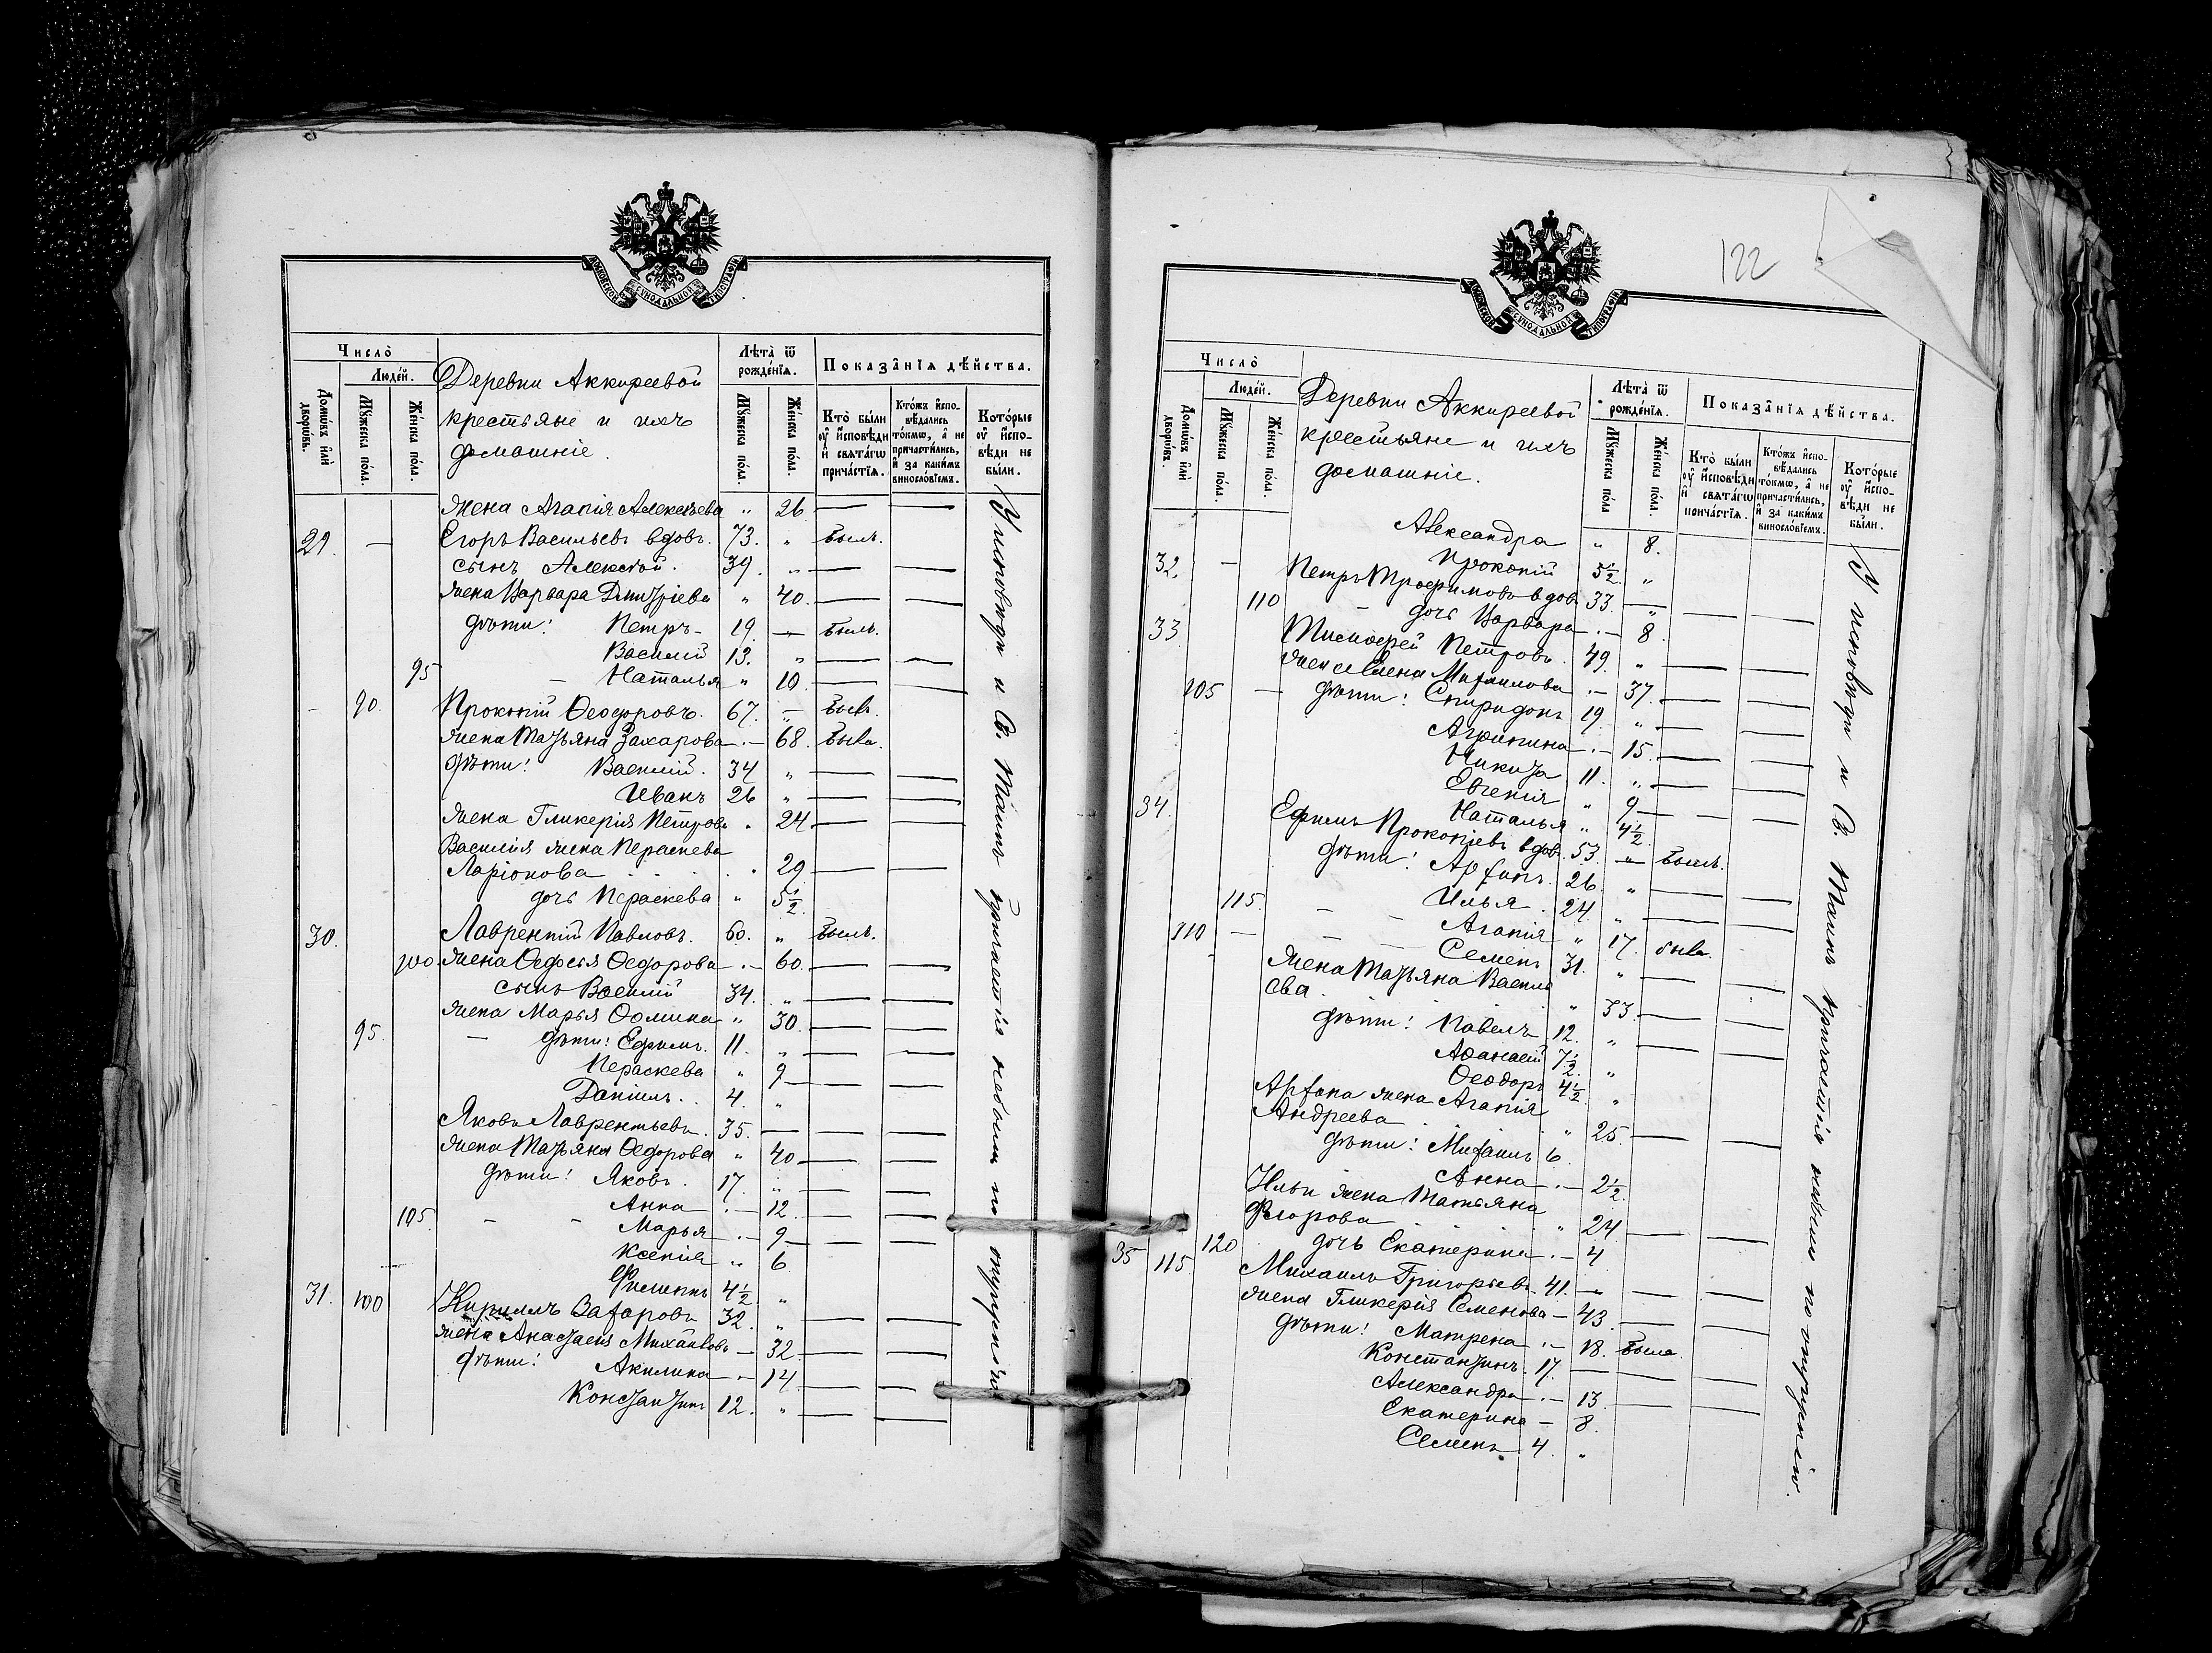 МОСКОВСКОЙ СѴНОДАЛЬНОЙ ТИПОГРАФІИ
Число̀
Люде́й.
Домѡ́въ и҆лѝ дворѡ́въ.
Мꙋ́жеска по́ла.
Же́нска по́ла.
Деревни Аккиреевой
крестьяне и ихъ
домашніе.
Лѣта̀ ѿ рожде́нїѧ.
Мꙋ́жеска по́ла.
Же́нска по́ла.
Показа̑нїѧ дѣ́йства.
Кто̀ бы́ли ᲂу҆ и҆сповѣди и҆ свѧта́гѡ прича́стїѧ.
Кто́жъ и҆спо-вѣдались то́кмѡ, а҆ не причасти́лись, и҆ за каки́мъ винословїемъ.
Кото́рые ᲂу҆ и҆спо-вѣди не бы́ли.
жена Агапія Алексѣева " 26. — —
29. — Егоръ Васильевъ вдовъ. 73. " былъ.
сынъ Алексѣй. 39. " — —
жена Варвара Дмитріева " 40. — —
дѣти: Петръ 19. — былъ.
Василій 13. " — —
95 Наталья " 10. — —
90. Прокопій Ѳеодоровъ. 67. " былъ.
жена Татьяна Захарова — 68. была.
дѣти: Василій. 34 " — —
Иванъ 26 " — —
жена Гликерія Петрова " 24 — —
Василія жена Пераскева
Ларіонова " 29 — —
дочь Пераскева " 5½
30. Лаврентій Павловъ. 60. " былъ.
100. жена Ѳедосья Ѳедорова — 60. — —
сынъ Василій 34. " — —
жена Марья Ѳомина " 30. — —
95. дѣти: Ефимъ. 11. " — —
Пераскева " 9 — —
Даніилъ. 4. "
Яковъ Лаврентьевъ. 35. — —
жена Татьяна Ѳедорова " 40 — —
дѣти: Яковъ. 17. " — —
Анна — 12. — —
105. Марья — 9 — —
Ксенія " 6
Филиппъ 4½ "
31. 100 Кириллъ Захаровъ 32. " — —
жена Анастасія Михайлова — 32. — —
дѣти: Акилина — 14 — —
Константинъ 12. " — —
У исповѣди и Св. Таинъ причастія небыли по опущенію
122
МОСКОВСКОЙ СѴНОДАЛЬНОЙ ТИПОГРАФІИ
Число̀
Люде́й.
Домѡ́въ и҆лѝ дворѡ́въ.
Мꙋ́жеска по́ла.
Же́нска по́ла.
Деревни Аккиреевой
крестьяне и ихъ
домашніе.
Лѣта̀ ѿ рожде́нїѧ.
Мꙋ́жеска по́ла
Же́нска по́ла.
Показа̑нїѧ дѣ́йства.
Кто̀ бы́ли ᲂу҆ и҆сповѣди и҆ свѧта́гѡ прича́стїѧ.
Кто́жъ и҆спо-вѣдались то́кмѡ, а҆ не причасти́лись, и҆ за каки́мъ винословїемъ.
Кото́рые ᲂу҆ и҆спо-вѣди не бы́ли.
Александра " 8.
Прокопій 5½ "
32. — Петръ Трофимовъ вдов. 33. " — —
110 дочь Варвара — 8.
33 Тимофей Петровъ. 49. " — —
жена Елена Михаилова — 37. — —
105 — дѣти: Спиридонъ 19. " — —
Агрипина — 15. — —
Никита 11. " — —
Евгенія " 9 — —
Наталья " 4½
34. Ефимъ Прокопіевъ вдов. 53. " былъ.
дѣти: Архипъ. 26. " — —
Илья. 24. " — —
115. Агапія " 17. была.
110 — Семенъ 31. " — —
жена Татьяна Василь
ева. " 33. — —
дѣти: Павелъ 12. " — —
Аѳанасій 7½ "
Ѳеодоръ 4½ "
Архипа жена Агапія
Андреева " 25. — —
дѣти: Михаилъ 6.
Анна — 2½.
Ильи жена Татьяна
Егорова " 24 — —
120 дочь Екатерина — 4
35 115 Михаилъ Григорьевъ 41. " — —
жена Гликерія Семенова — 43. — —
дѣти: Матрена — 18. была.
Константинъ. 17. — —
Александра — 13. — —
Екатерина — 8.
Семенъ 4. "
У исповѣди и Св. Таинъ причастія небыли по опущенію.